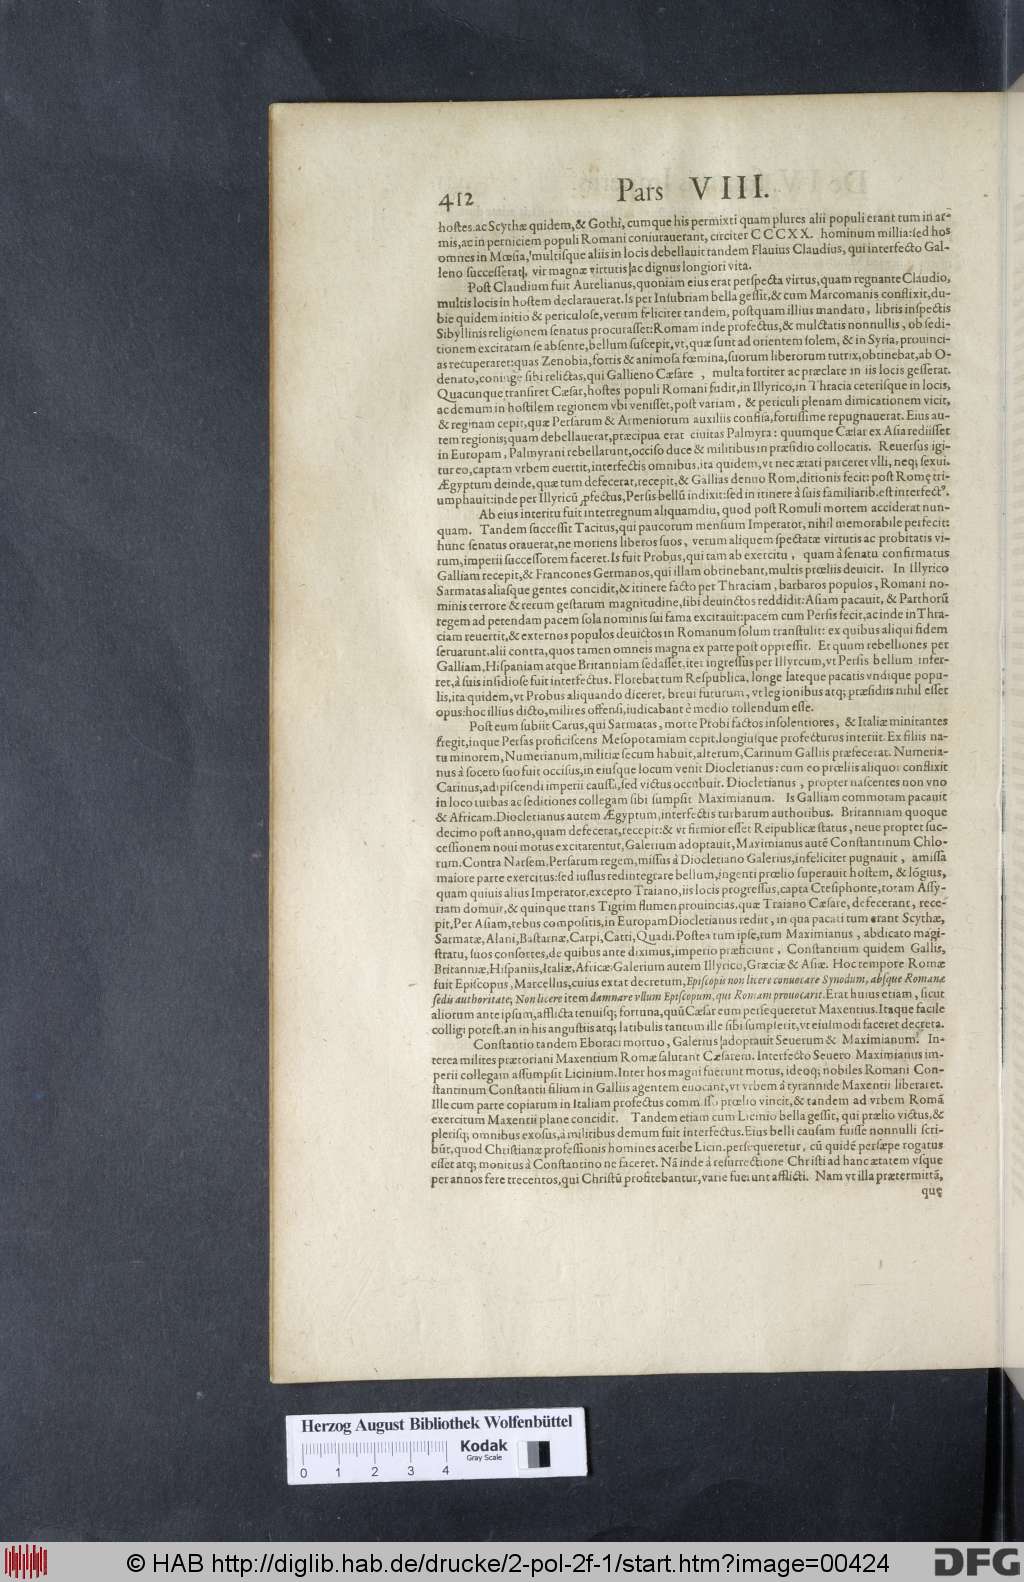 412 Pars VIII.
hostes. ac Scythæ quidem, & Gothi, cumque his permixti quam plures alii populi erant tum in ar-
mis, ac in perniciem populi Romani coniurauerant, circiter CCCXX. hominum millia: sed hos
omnes in Mœsia, multisque aliis in locis debellauit tandem Flauius Claudius, qui interfecto Gal-
leno successerat, vir magnæ virtutis ac dignus longiori vita.
Post Claudium fuit Aurelianus, quoniam eius erat perspecta virtus, quam regnante Claudio,
multis locis in hostem declarauerat. Is per Insubriam bella gessit, & cum Marcomanis conflixit, du-
bie quidem initio & periculose, verum feliciter tandem, postquam illius mandatu, libris inspectis
Sibyllinis religionem senatus procurasset: Romam inde profectus, & mulctatis nonnullis, ob sedi-
tionem excitatam se absente, bellum suscepit, vt, quæ sunt ad orientem solem, & in Syria, prouinci-
as recuperaret: quas Zenobia, fortis & animosa fœmina, suorum liberorum tutrix, obtinebat, ab O-
denato, coniuge sibi relictas, qui Gallieno Cæsare, multa fortiter ac præclare in iis locis gesserat.
Quacunque transiret Cæsar, hostes populi Romani fudit, in Illyrico, in Thracia ceterisque in locis,
ac demum in hostilem regionem vbi venisset, post variam, & periculi plenam dimicationem vicit,
& reginam cepit, quæ Persarum & Armeniorum auxiliis confisa, fortissime repugnauerat. Eius au-
tem regionis, quam debellauerat, præcipua erat ciuitas Palmyra: quumque Cæsar ex Asia rediisset
in Europam, Palmyrani rebellarunt, occiso duce & militibus in præsidio collocatis. Reuersus igi-
tur eo, captam vrbem euertit, interfectis omnibus, ita quidem, vt nec ætati parceret vlli, neq; sexui.
Ægyptum deinde, quæ tum defecerat, recepit, & Gallias denuo Rom, ditionis fecit: post Romę tri-
umphauit: inde per Illyricū ꝓfectus, Persis bellū indixit: sed in itinere à suis familiarib. est interfectꝰ.
Ab eius interitu fuit interregnum aliquamdiu, quod post Romuli mortem acciderat nun-
quam. Tandem successit Tacitus, qui paucorum mensium Imperator, nihil memorabile perfecit:
hunc senatus orauerat, ne moriens liberos suos, verum aliquem spectatæ virtutis ac probitatis vi-
rum, imperii successorem faceret. Is fuit Probus, qui tam ab exercitu, quam à senatu confirmatus
Galliam recepit, & Francones Germanos, qui illam obtinebant, multis prœliis deuicit. In Illyrico
Sarmatas aliasque gentes concidit, & itinere facto per Thraciam, barbaros populos, Romani no-
minis terrore & rerum gestarum magnitudine, sibi deuinctos reddidit: Asiam pacauit, & Parthorū
regem ad petendam pacem sola nominis sui fama excitauit: pacem cum Persis fecit, ac inde in Thra-
ciam reuertit, & externos populos deuictos in Romanum solum transtulit: ex quibus aliqui fidem
seruarunt, alii contra, quos tamen omneis magna ex parte post oppressit. Et quum rebelliones per
Galliam, Hispaniam atque Britanniam sedasset, iter ingressus per Illyrcum, vt Persis bellum infer-
ret, à suis insidiose fuit interfectus. Florebat tum Respublica, longe lateque pacatis vndique popu-
lis, ita quidem, vt Probus aliquando diceret, breui futurum, vt legionibus atq; præsidiis nihil esset
opus: hoc illius dicto, milites offensi, iudicabant è medio tollendum esse.
Post eum subiit Carus, qui Sarmatas, morte Probi factos insolentiores, & Italiæ minitantes
fregit, inque Persas proficiscens Mesopotamiam cepit, longiusque profecturus interiit. Ex filiis na-
tu minorem, Numerianum, militiæ secum habuit, alterum, Carinum Galliis præfecerat. Numeria-
nus à socero suo fuit occisus, in eiusque locum venit Diocletianus: cum eo prœliis aliquot conflixit
Carinus, adipiscendi imperii caussa, sed victus occubuit. Diocletianus, propter nascentes non vno
in loco turbas ac seditiones collegam sibi sumpsit Maximianum. Is Galliam commotam pacauit
& Africam. Diocletianus autem Ægyptum, interfectis turbarum authoribus. Britanniam quoque
decimo post anno, quam defecerat, recepit: & vt firmior esset Reipublicæ status, neue propter suc-
cessionem noui motus excitarentur, Galerium adoptauit, Maximianus autē Constantinum Chlo-
rum. Contra Narsem, Persarum regem, missus à Diocletiano Galerius, infeliciter pugnauit, amissa
maiore parte exercitus: sed iussus redintegrare bellum, ingenti prœlio superauit hostem, & lōgius,
quam quiuis alius Imperator, excepto Traiano, iis locis progressus, capta Ctesiphonte, totam Assy-
riam domuit, & quinque trans Tigrim flumen prouincias, quæ Traiano Cæsare, defecerant, rece-
pit, Per Asiam, rebus compositis, in Europam Diocletianus rediit, in qua pacati tum erant Scythæ,
Sarmatæ, Alani, Bastarnæ, Carpi, Catti, Quadi. Postea tum ipse, tum Maximianus, abdicato magi-
stratu, suos consortes, de quibus ante diximus, imperio præficiunt, Constantium quidem Gallis,
Britanniæ, Hispaniis, Italiæ, Africæ: Galerium autem Illyrico, Græciæ & Asiæ. Hoc tempore Romæ
fuit Episcopus, Marcellus, cuius extat decretum, Episcopis non licere conuocare Synodum, absque Romanæ
sedis authoritate; Non licere item damnare vllum Episcopum, qui Romam prouocarit. Erat huius etiam, sicut
aliorum ante ipsum, afflicta tenuisq; fortuna, quū Cæsar eum persequeretur Maxentius. Itaque facile
colligi potest, an in his angustiis atq; latibulis tantum ille sibi sumpserit, vt eiusmodi faceret decreta.
Constantio tandem Eboraci mortuo, Galerius adoptauit Seuerum & Maximianum. In-
terea milites prætoriani Maxentium Romæ salutant Cæsarem. Interfecto Seuero Maximianus im-
perii collegam assumpsit Licinium. Inter hos magni fuerunt motus, ideoq; nobiles Romani Con-
stantinum Constantii filium in Galliis agentem euocant, vt vrbem à tyrannide Maxentii liberaret.
Ille cum parte copiarum in Italiam profectus commisso prœlio vincit, & tandem ad vrbem Romā
exercitum Maxentii plane concidit. Tandem etiam cum Licinio bella gessit, qui prælio victus, &
plerisq; omnibus exosus, à militibus demum fuit interfectus. Eius belli causam fuisse nonnulli scri-
būt, quod Christianæ professionis homines acerbe Licin. persequeretur, cū quidē persæpe rogatus
esset atq; monitus à Constantino ne faceret. Nā inde à resurrectione Christi ad hanc ætatem vsque
per annos fere trecentos, qui Christū profitebantur, varie fuerunt afflicti. Nam vt illa prætermittā,
quę
Herzog August Bibliothek Wolfenbüttel
Kodak
Gray Scale
0 1 2 3 4
© HAB http://diglib.hab.de/drucke/2-pol-2f-1/start.htm?image=00424
DFG